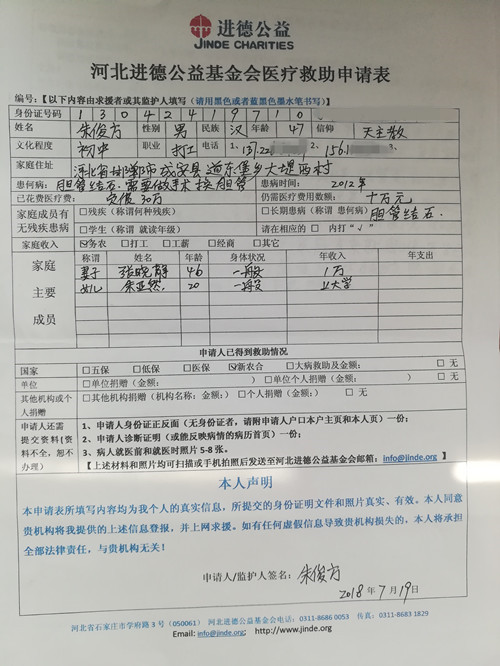 进德公益
JINDE CHARITIES
河北进德公益基金会医疗救助申请表
编号:【以下内容由求援者或其监护人填写(请用黑色或者蓝黑色墨水笔书写)】
身份证号码 1 3 0 4 2 4 1 9 7 1 0
姓名 朱俊方 性别 男 民族 汉 年龄 47 信仰 天主教
文化程度 初中 职业 打工 电话 1、137.22 2、156.1
家庭住址 河北省邯郸市成安县道东堡乡大堤西村
患何病: 胆管结石.需要做手术接胆管 患病时间: 2012年
已花费医疗费: 30万 仍需医疗费用数额: 十万元
家庭成员有无残疾患病 □残疾(称谓何种残疾) □长期患病(称谓 患何病) 胆管结石.
□学生(称谓 就读年级) 请在相应的 □ 内打"√"
家庭收入 ☑务农 □打工 □工薪 □经商 □其它
家庭主要成员 称谓 姓名 年龄 身体状况 年收入 年支出
妻子 46 一般 1万
女儿 朱亚然 20 一般 上大学
申请人已得到救助情况
国家 □五保 □低保 □医保 ☑新农合 □大病救助及金额: □ 无
单位 □单位捐赠(金额: ) □单位个人捐赠(金额: ) □ 无
其他机构或个人捐赠 □其他机构捐赠(机构名称:金额:) □个人捐赠(金额: ) □ 无
申请人还需提交资料(资料不全,恕不办理) 1、申请人身份证正反面(无身份证者,请附申请人户口本户主页和本人页)一份;
2、申请人诊断证明(或能反映病情的病历首页)一份;
3、病人就医前和就医时照片 5-8 张。
【上述材料和照片均可扫描或手机拍照后发送至河北进德公益基金会邮箱:info@jinde.org】
本人声明
本申请表所填写内容均为我个人的真实信息,所提交的身份证明文件和照片真实、有效。本人同意
贵机构将我提供的上述信息登报,并上网求援。如有任何虚假信息导致贵机构损失的,本人将承担
全部法律责任,与贵机构无关!
申请人/监护人签名: 朱俊方
2018年7月19日
河北省石家庄市学府路 3 号(050061) 河北进德公益基金会电话:0311-8686 0053 传真:0311-8683 1829
Email: info@jinde.org; http://www.jinde.org